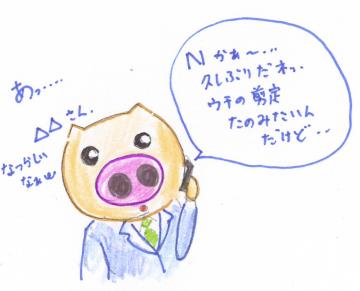 Nかぁ〜...
久しぶりだネっ.
ウチの剪定
たのみたいん
だけど・・
あっ....
△△さん.
なつかしい
なぁw